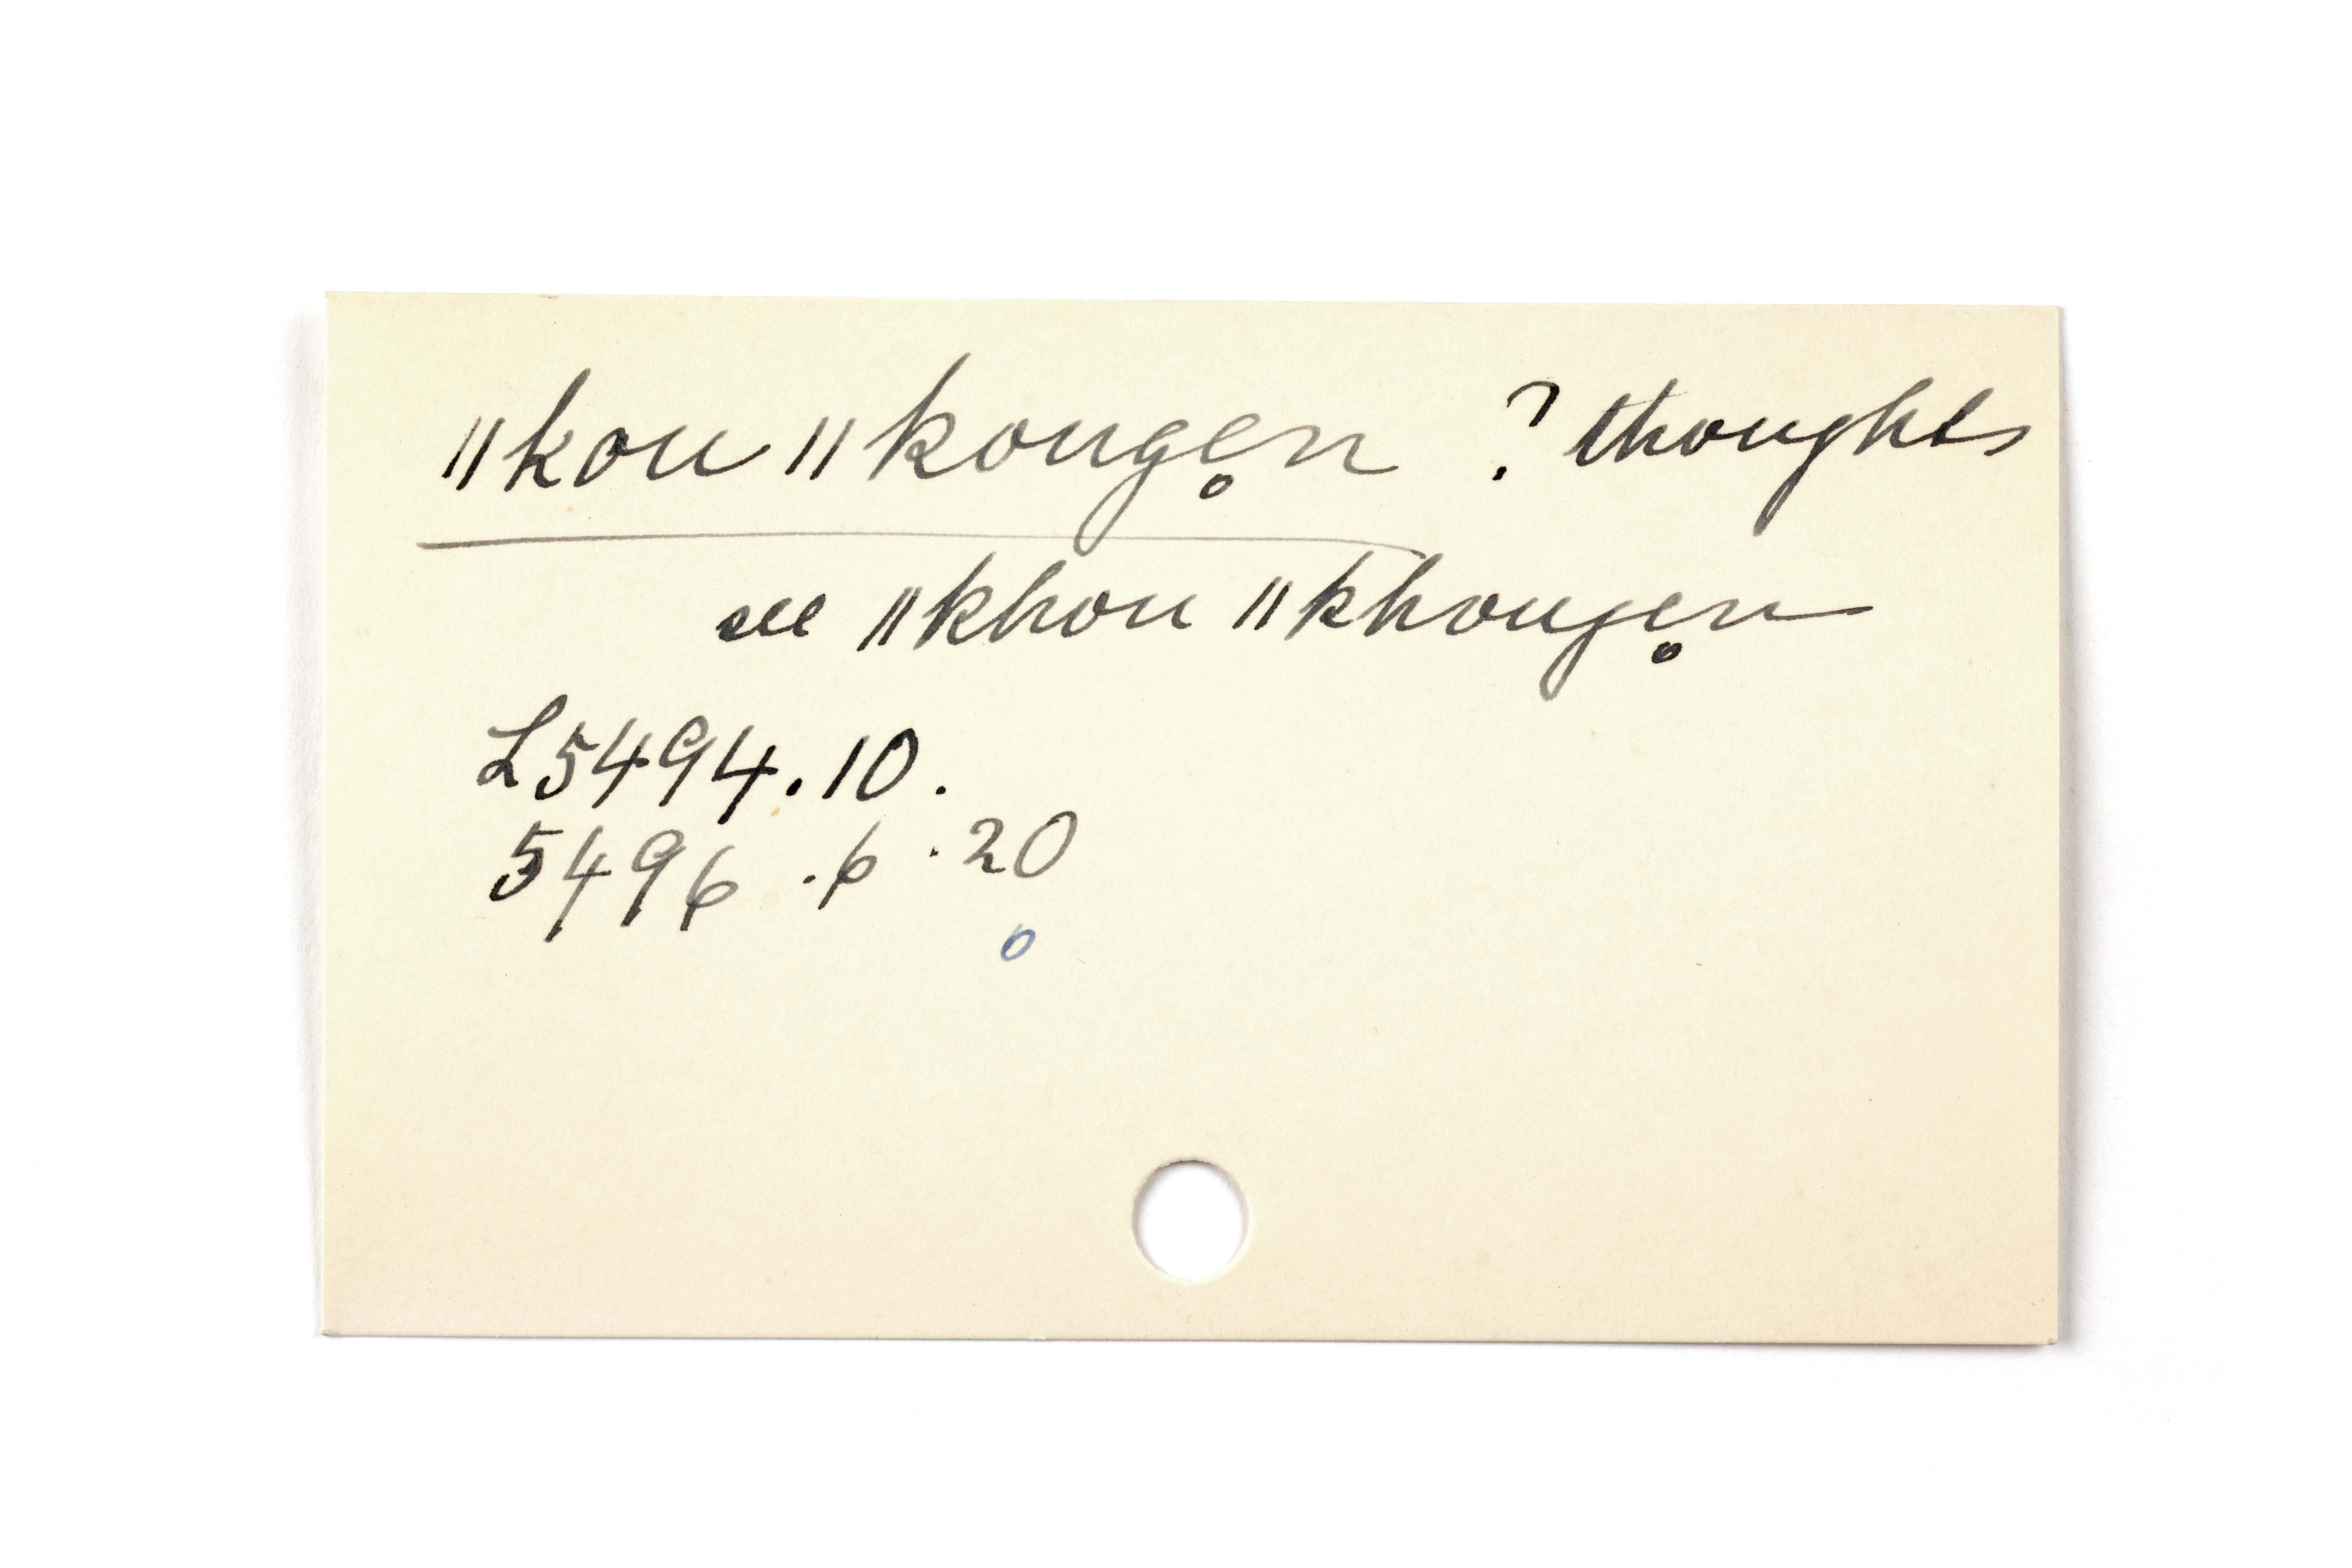 ǁkou ǁkouge̥n ? thoughts
see ǁkhou ǁkhouge̥n
L5494.10.
5496.6.20
o